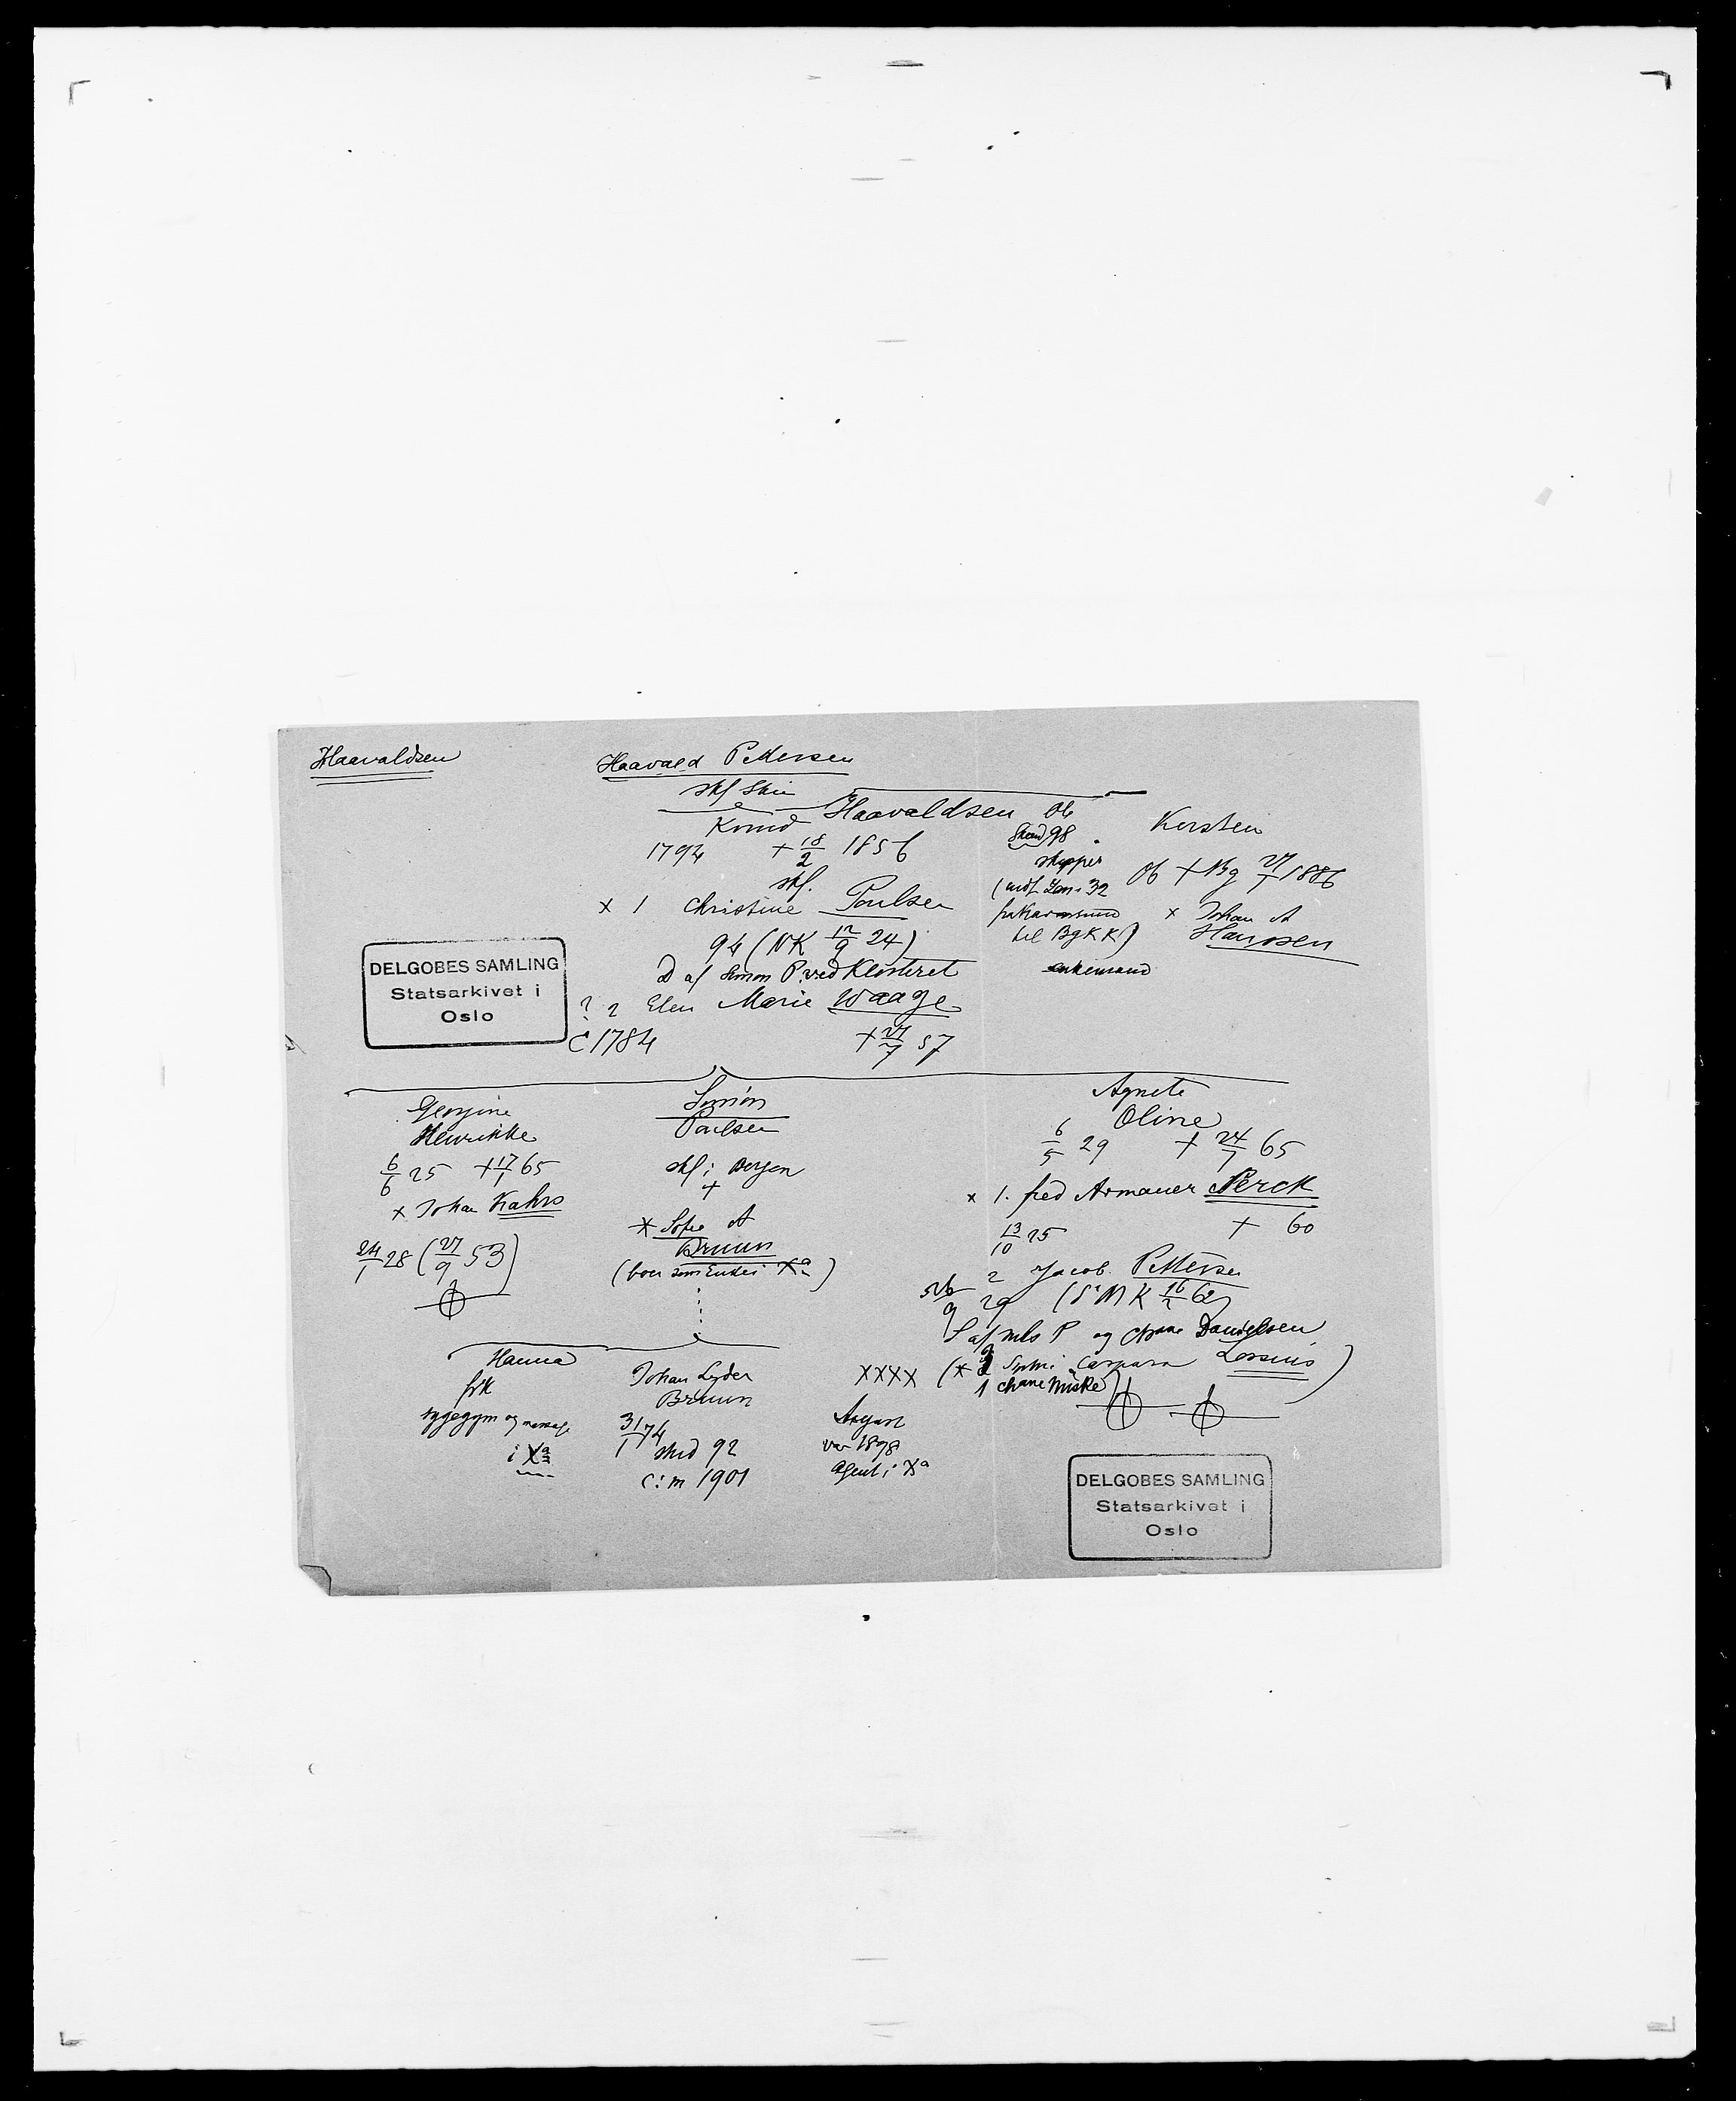 Haavaldsen
Haavald Pettersen
skf Skin
Knud Haavaldsen
1794 + 18/2 1856
skf.
x 1 Christine Poulsen
94 (NK 12/9 24)
D af Simon P. ved Klosteret
? 2 Elen Marie Waage
c 1784 + 27/7 57
Ob
98
skipper
(indf. 32
fra Karmsund
til Bg KK)
enkemand
Kirsten
Ob + Bg 27/1 1886
x Johan A
Hanssen
DELGOBES SAMLING
Statsarkivet i
Oslo
Georgine
Henrikke
6/6 25 + 17/1 65
x Johan Kahrs
24/1 28 (27/9 53)
Simon
Poulsen
skf i Bergen
+
x Sofie A
Bruun
(boer som Enke i Xa)
Agnete
Oline
6/5 29 + 24/7 65
x 1. fred Armauer Perck
13/10 25 + 60
2 Jacob Pettersen
9 29 (NK 16/2 62)
S af Nils P og Danielsen
(x 2 Caspara Lossius)
1 Miske)
Hanna
frk
sygegym og massage
i Xa
Johan Lyder
Bruun
31/1 74
stud 92
c: m 1901
xxxx
August
var 1898
agent i Xa
DELGOBES SAMLING
Statsarkivet i
Oslo